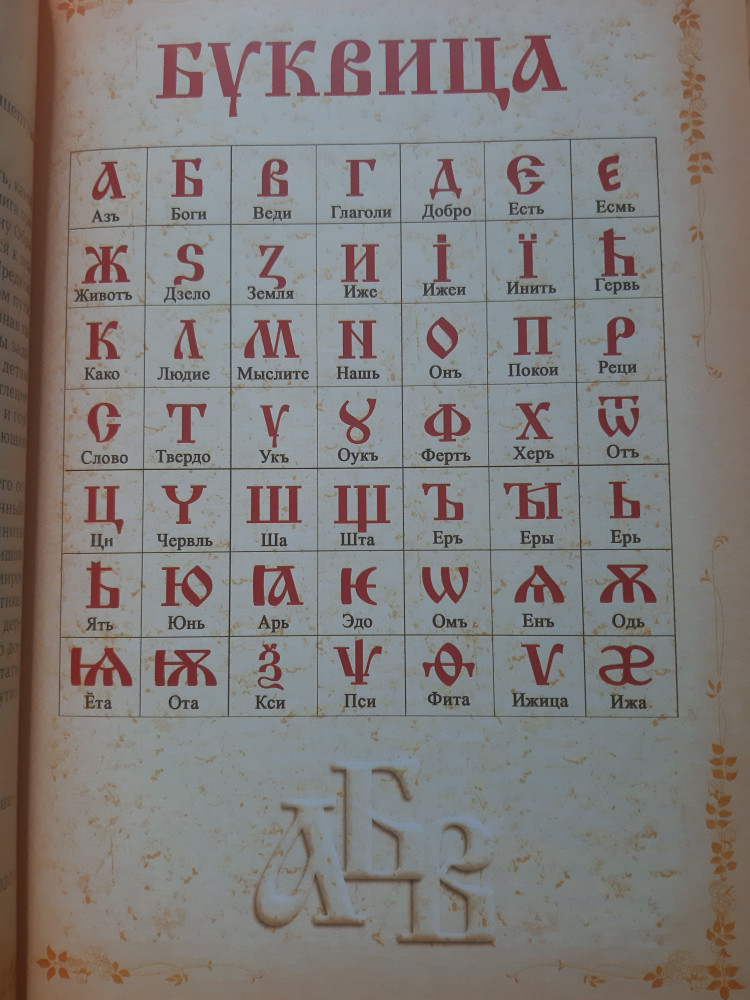 БУКВИЦА
А Б В Г Д Є Е
Азъ Боги Веди Глаголи Добро Есть Есмь
Ж Ѕ З И І Ї Ћ
Животъ Дзело Земля Иже Ижеи Инить Гервь
К Л М N О П Р
Како Людие Мыслите Нашь Онъ Покои Реци
С Т Ѵ Ȣ Ф Х Ѿ
Слово Твердо Укъ Оукъ Фертъ Херъ Отъ
Ц Ч Ш Щ Ъ Ꙑ Ь
Ци Червль Ша Шта Еръ Еры Ерь
Ѣ Ю Ꙗ Ѥ Ѡ Ѧ Ѫ
Ять Юнь Арь Эдо Омъ Енъ Одь
Ѩ Ѭ Ѯ Ѱ Ѳ Ѵ Æ
Ёта Ота Кси Пси Фита Ижица Ижа
АБВ